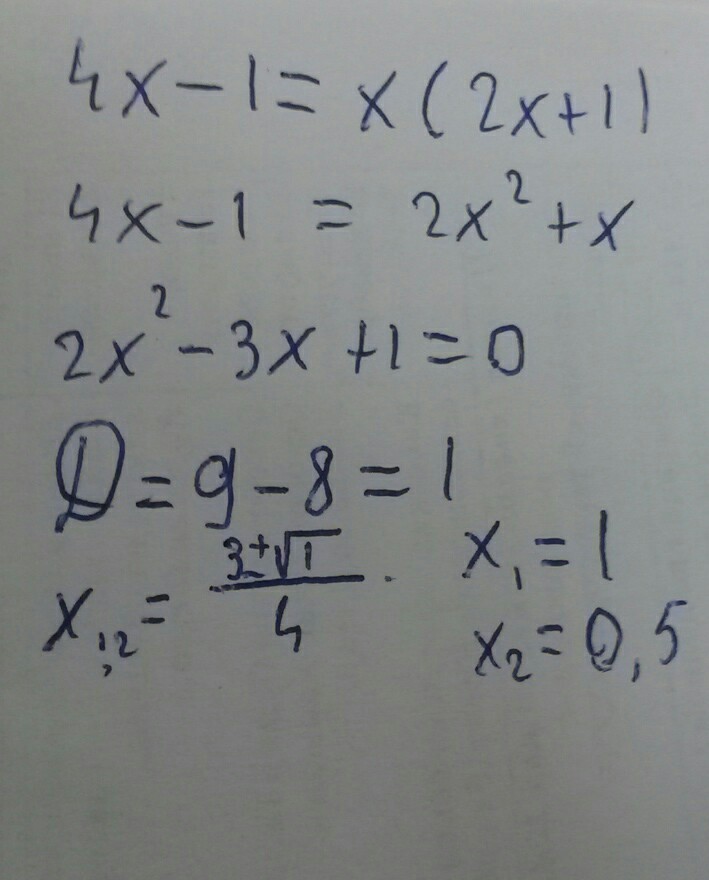 4x-1= x(2x+1)
4x-1 = 2x²+x
2x²-3x+1=0
D=9-8=1
x₁,₂= (3±√1)/4
x₁=1
x₂=0,5